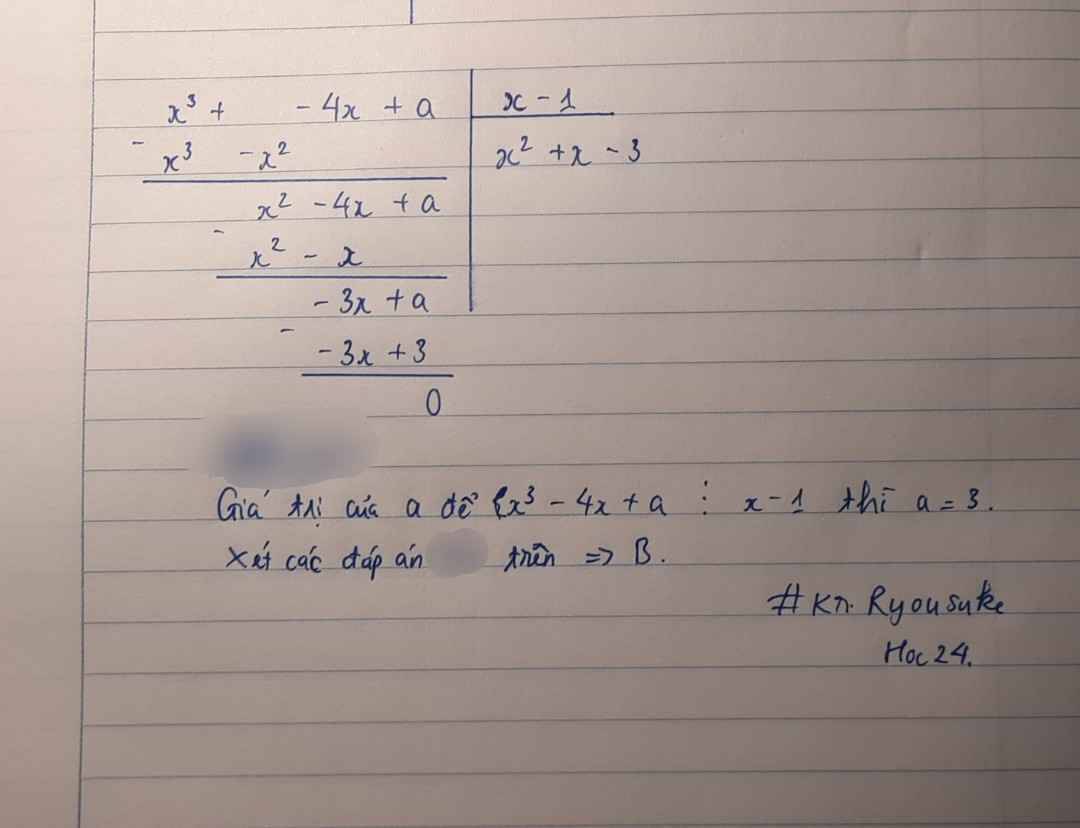 x³ + - 4x + a x - 1
- x³ - x² x² + x - 3
x² - 4x + a
- x² - x
- 3x + a
- - 3x + 3
0
Giá trị của a để x³ - 4x + a ⋮ x - 1 thì a = 3.
Xét các đáp án trên => B.
#Kn. Ryousuke
Hoc24.